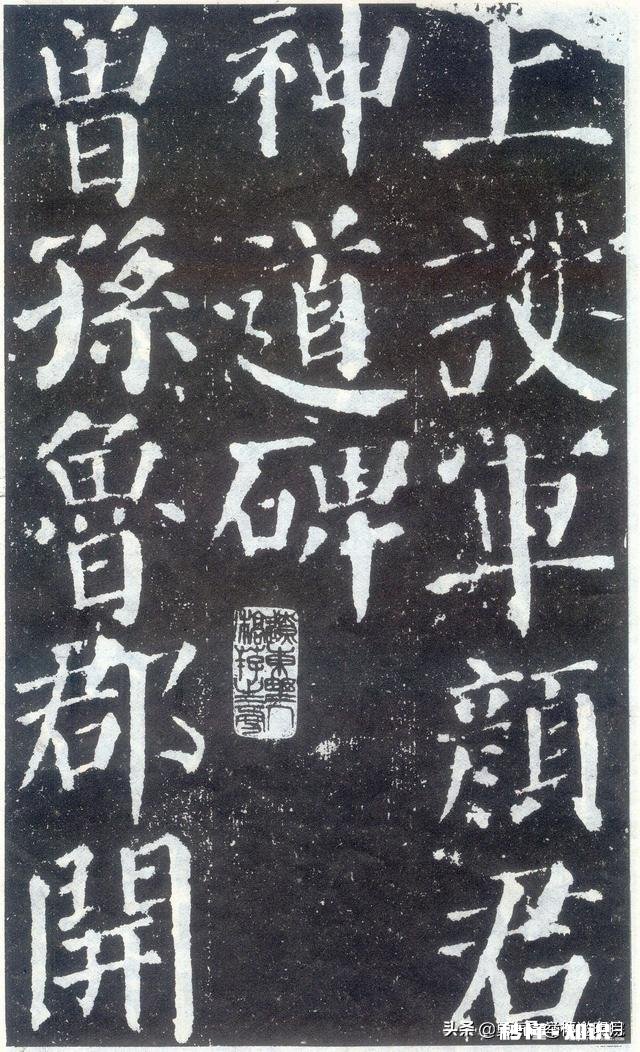 上護軍顏君
神道碑
曾孫魯郡開
头条@